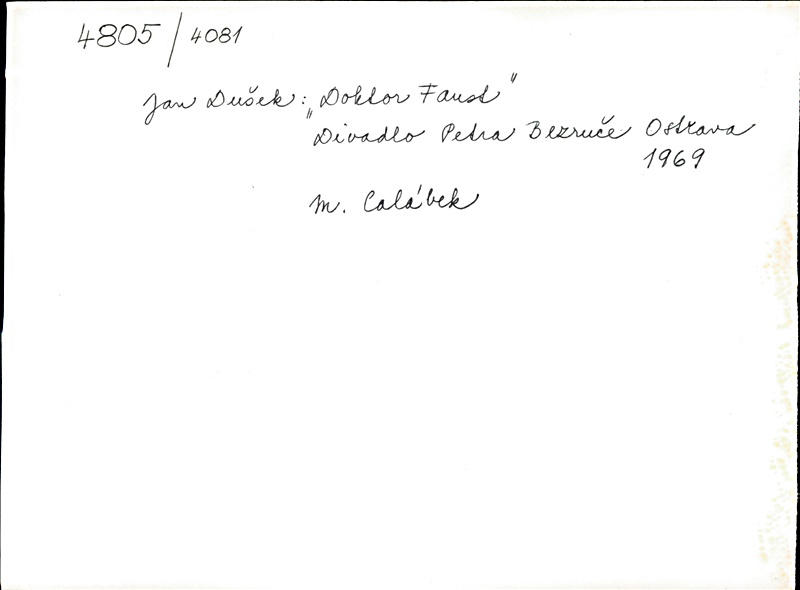 4805 / 4081
Jan Dušek: „Doktor Faust"
Divadlo Petra Bezruče Ostrava
1969
M. Calábek